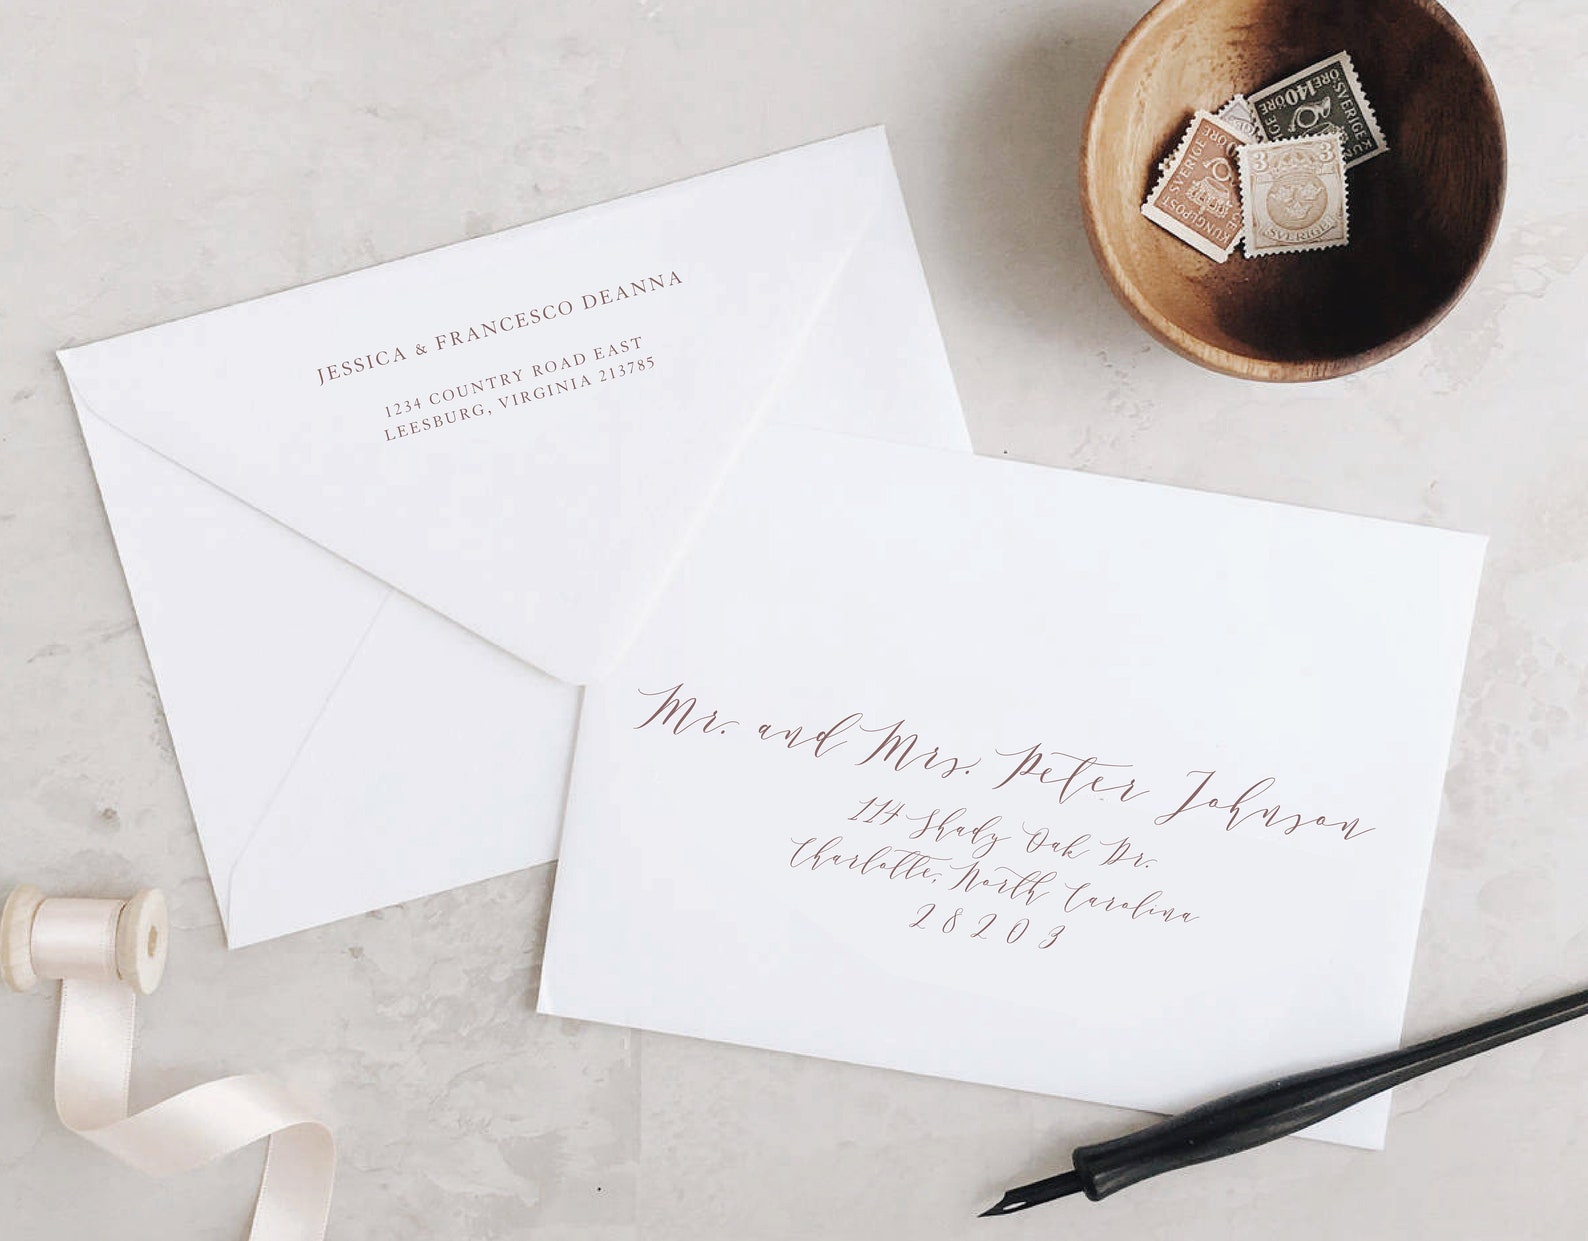 JESSICA & FRANCESCO DEANNA
1234 COUNTRY ROAD EAST
LEESBURG, VIRGINIA 213785
Mr. and Mrs. Peter Johnson
114 Shady Oak Dr.
Charlotte, North Carolina
28203
ÖRE 140 ÖRE
SVERIGE
KUNGLPOST
SVERIGE
3 3
SVERIGE